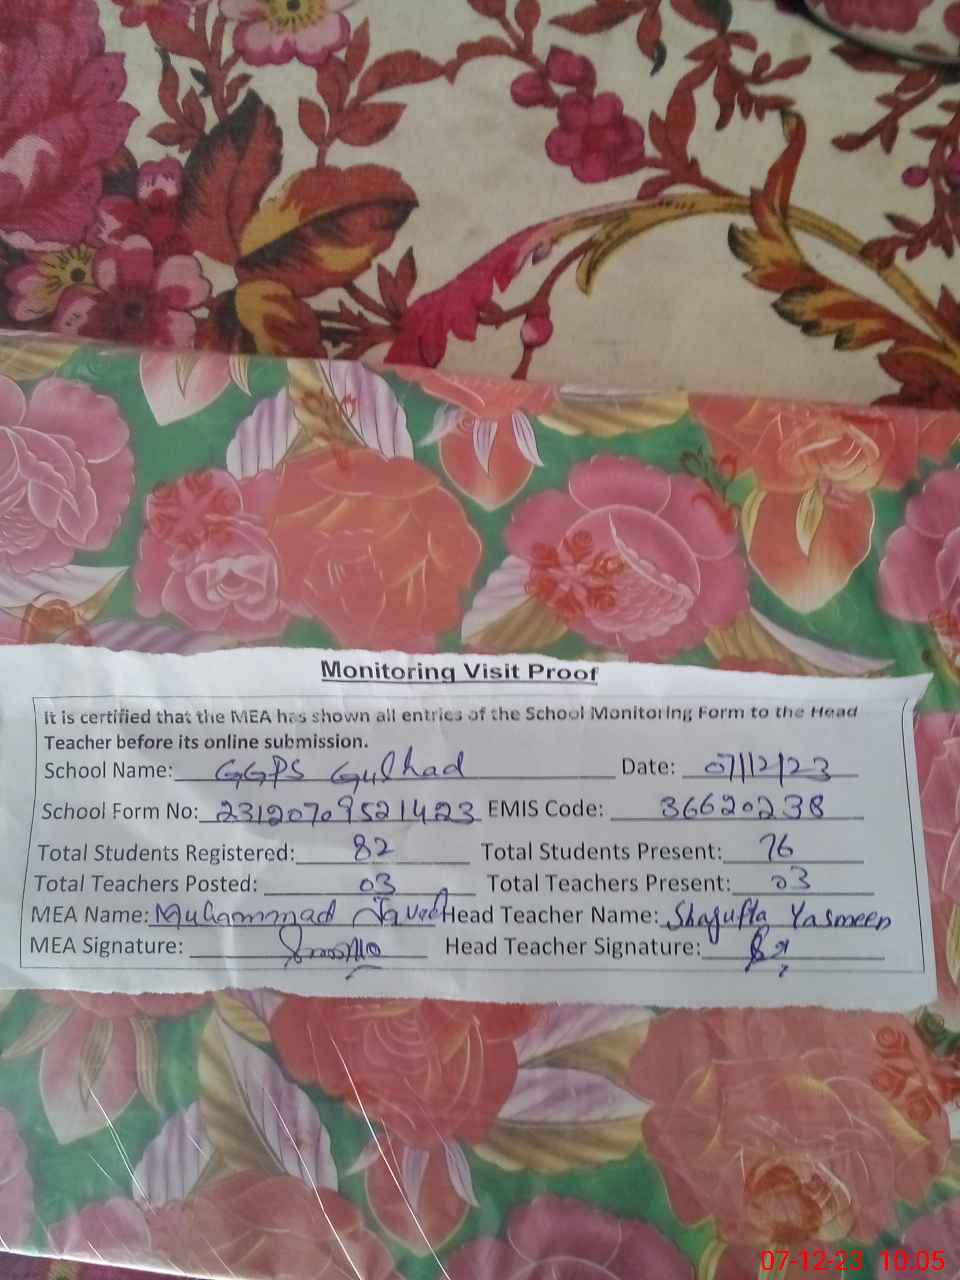 Monitoring Visit Proof
It is certified that the MEA has shown all entries of the School Monitoring Form to the Head
Teacher before its online submission.
School Name: GGPS Gulhad Date: 07/12/23
School Form No: 23120709521423 EMIS Code: 36620238
Total Students Registered: 82 Total Students Present: 76
Total Teachers Posted: 03 Total Teachers Present: 03
MEA Name: Muhammad Javed Head Teacher Name: Shagufta Yasmeen
MEA Signature: Head Teacher Signature:
07-12-23 10:05